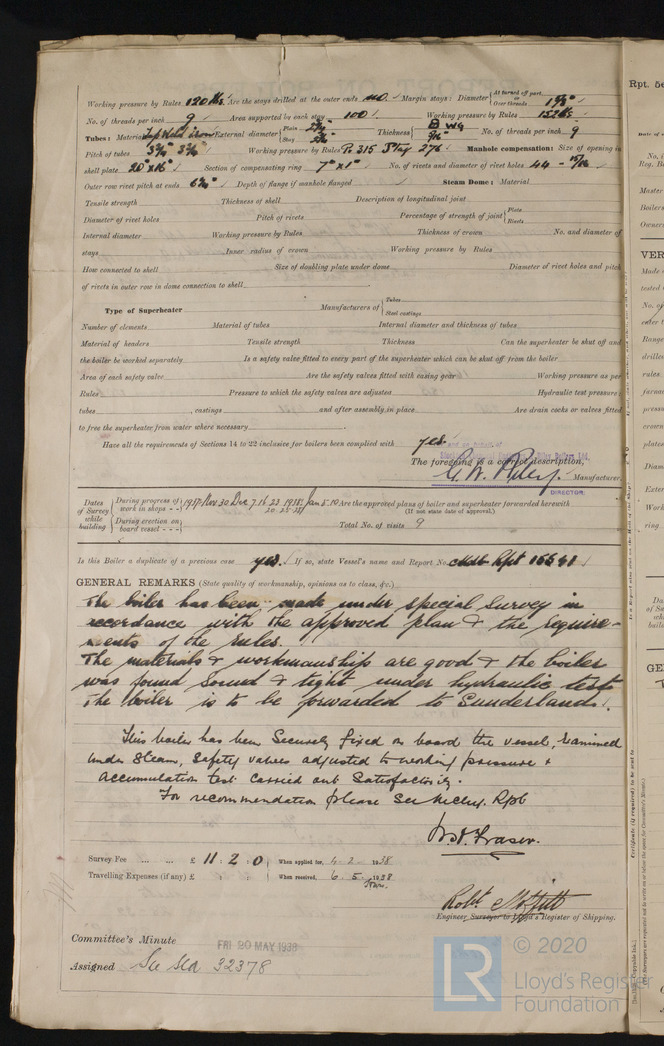 Working pressure by Rules 120 lbs. Are the stays drilled at the outer ends no. Margin stays: Diameter { At turned off part, or Over threads 1 5/8"
No. of threads per inch 9 Area supported by each stay 100 Working pressure by Rules 152 lbs
Tubes: Material Lap Weld iron External diameter { Plain Stay Thickness { 8 WG 5/16" No. of threads per inch 9
Pitch of tubes 3 3/4" 3 3/4" Working pressure by Rules P. 315 Stay 276 Manhole compensation: Size of opening in
shell plate 20" x 16" Section of compensating ring 7" x 1" No. of rivets and diameter of rivet holes 44 - 15/16
Outer row rivet pitch at ends Depth of flange if manhole flanged Steam Dome: Material
Tensile strength Thickness of shell Description of longitudinal joint
Diameter of rivet holes Pitch of rivets Percentage of strength of joint { Plate Rivets
Internal diameter Working pressure by Rules Thickness of crown No. and diameter of
stays Inner radius of crown Working pressure by Rules
How connected to shell Size of doubling plate under dome Diameter of rivet holes and pitch
of rivets in outer row in dome connection to shell
Type of Superheater Manufacturers of { Tubes Steel castings
Number of elements Material of tubes Internal diameter and thickness of tubes
Material of headers Tensile strength Thickness Can the superheater be shut off and
the boiler be worked separately Is a safety valve fitted to every part of the superheater which can be shut off from the boiler
Area of each safety valve Are the safety valves fitted with easing gear Working pressure as per
Rules Pressure to which the safety valves are adjusted Hydraulic test pressure:
tubes , castings and after assembly in place Are drain cocks or valves fitted
to free the superheater from water where necessary
Have all the requirements of Sections 14 to 22 inclusive for boilers been complied with yes.
The foregoing is a correct description,
G. W. Riley. Manufacturer.
DIRECTOR:
Dates of Survey while building { During progress of work in shops - - } 1937 Nov 30 Dec 7. 16 23 1938 Jan 5. 10 20. 25. 28 Are the approved plans of boiler and superheater forwarded herewith
(If not state date of approval.)
{ During erection on board vessel - - - } Total No. of visits 9
Is this Boiler a duplicate of a previous case yes. If so, state Vessel's name and Report No. Mdb Rpt 16541
GENERAL REMARKS (State quality of workmanship, opinions as to class, &c.)
The boiler has been made under special survey in
accordance with the approved plan & the require-
ments of the rules.
The materials & workmanship are good & the boiler
was found sound & tight under hydraulic test.
The boiler is to be forwarded to Sunderland.
This boiler has been securely fixed on board the vessel, examined
under steam, safety valves adjusted to working pressure &
accumulation test carried out satisfactorily.
For recommendation please see Mchy. Rpt
Fraser.
Survey Fee ... ... £ 11 : 2 : 0 When applied for, 4 - 2 - 1938
Travelling Expenses (if any) £ : : When received, 6. 5. 1938
Robt. Moffitt
Engineer Surveyor to Lloyd's Register of Shipping.
Committee's Minute FRI 20 MAY 1938
Assigned See Sld 32378
© 2020
LR Lloyd's Register
Foundation
Rpt. 5c
Date of
No. in
Reg. B
Master
Boilers
Owners
VER
Made
tested
No. of
Range
drilled
rules
furnac
pressur
crown
plates
Diam
Exter
Work
ring